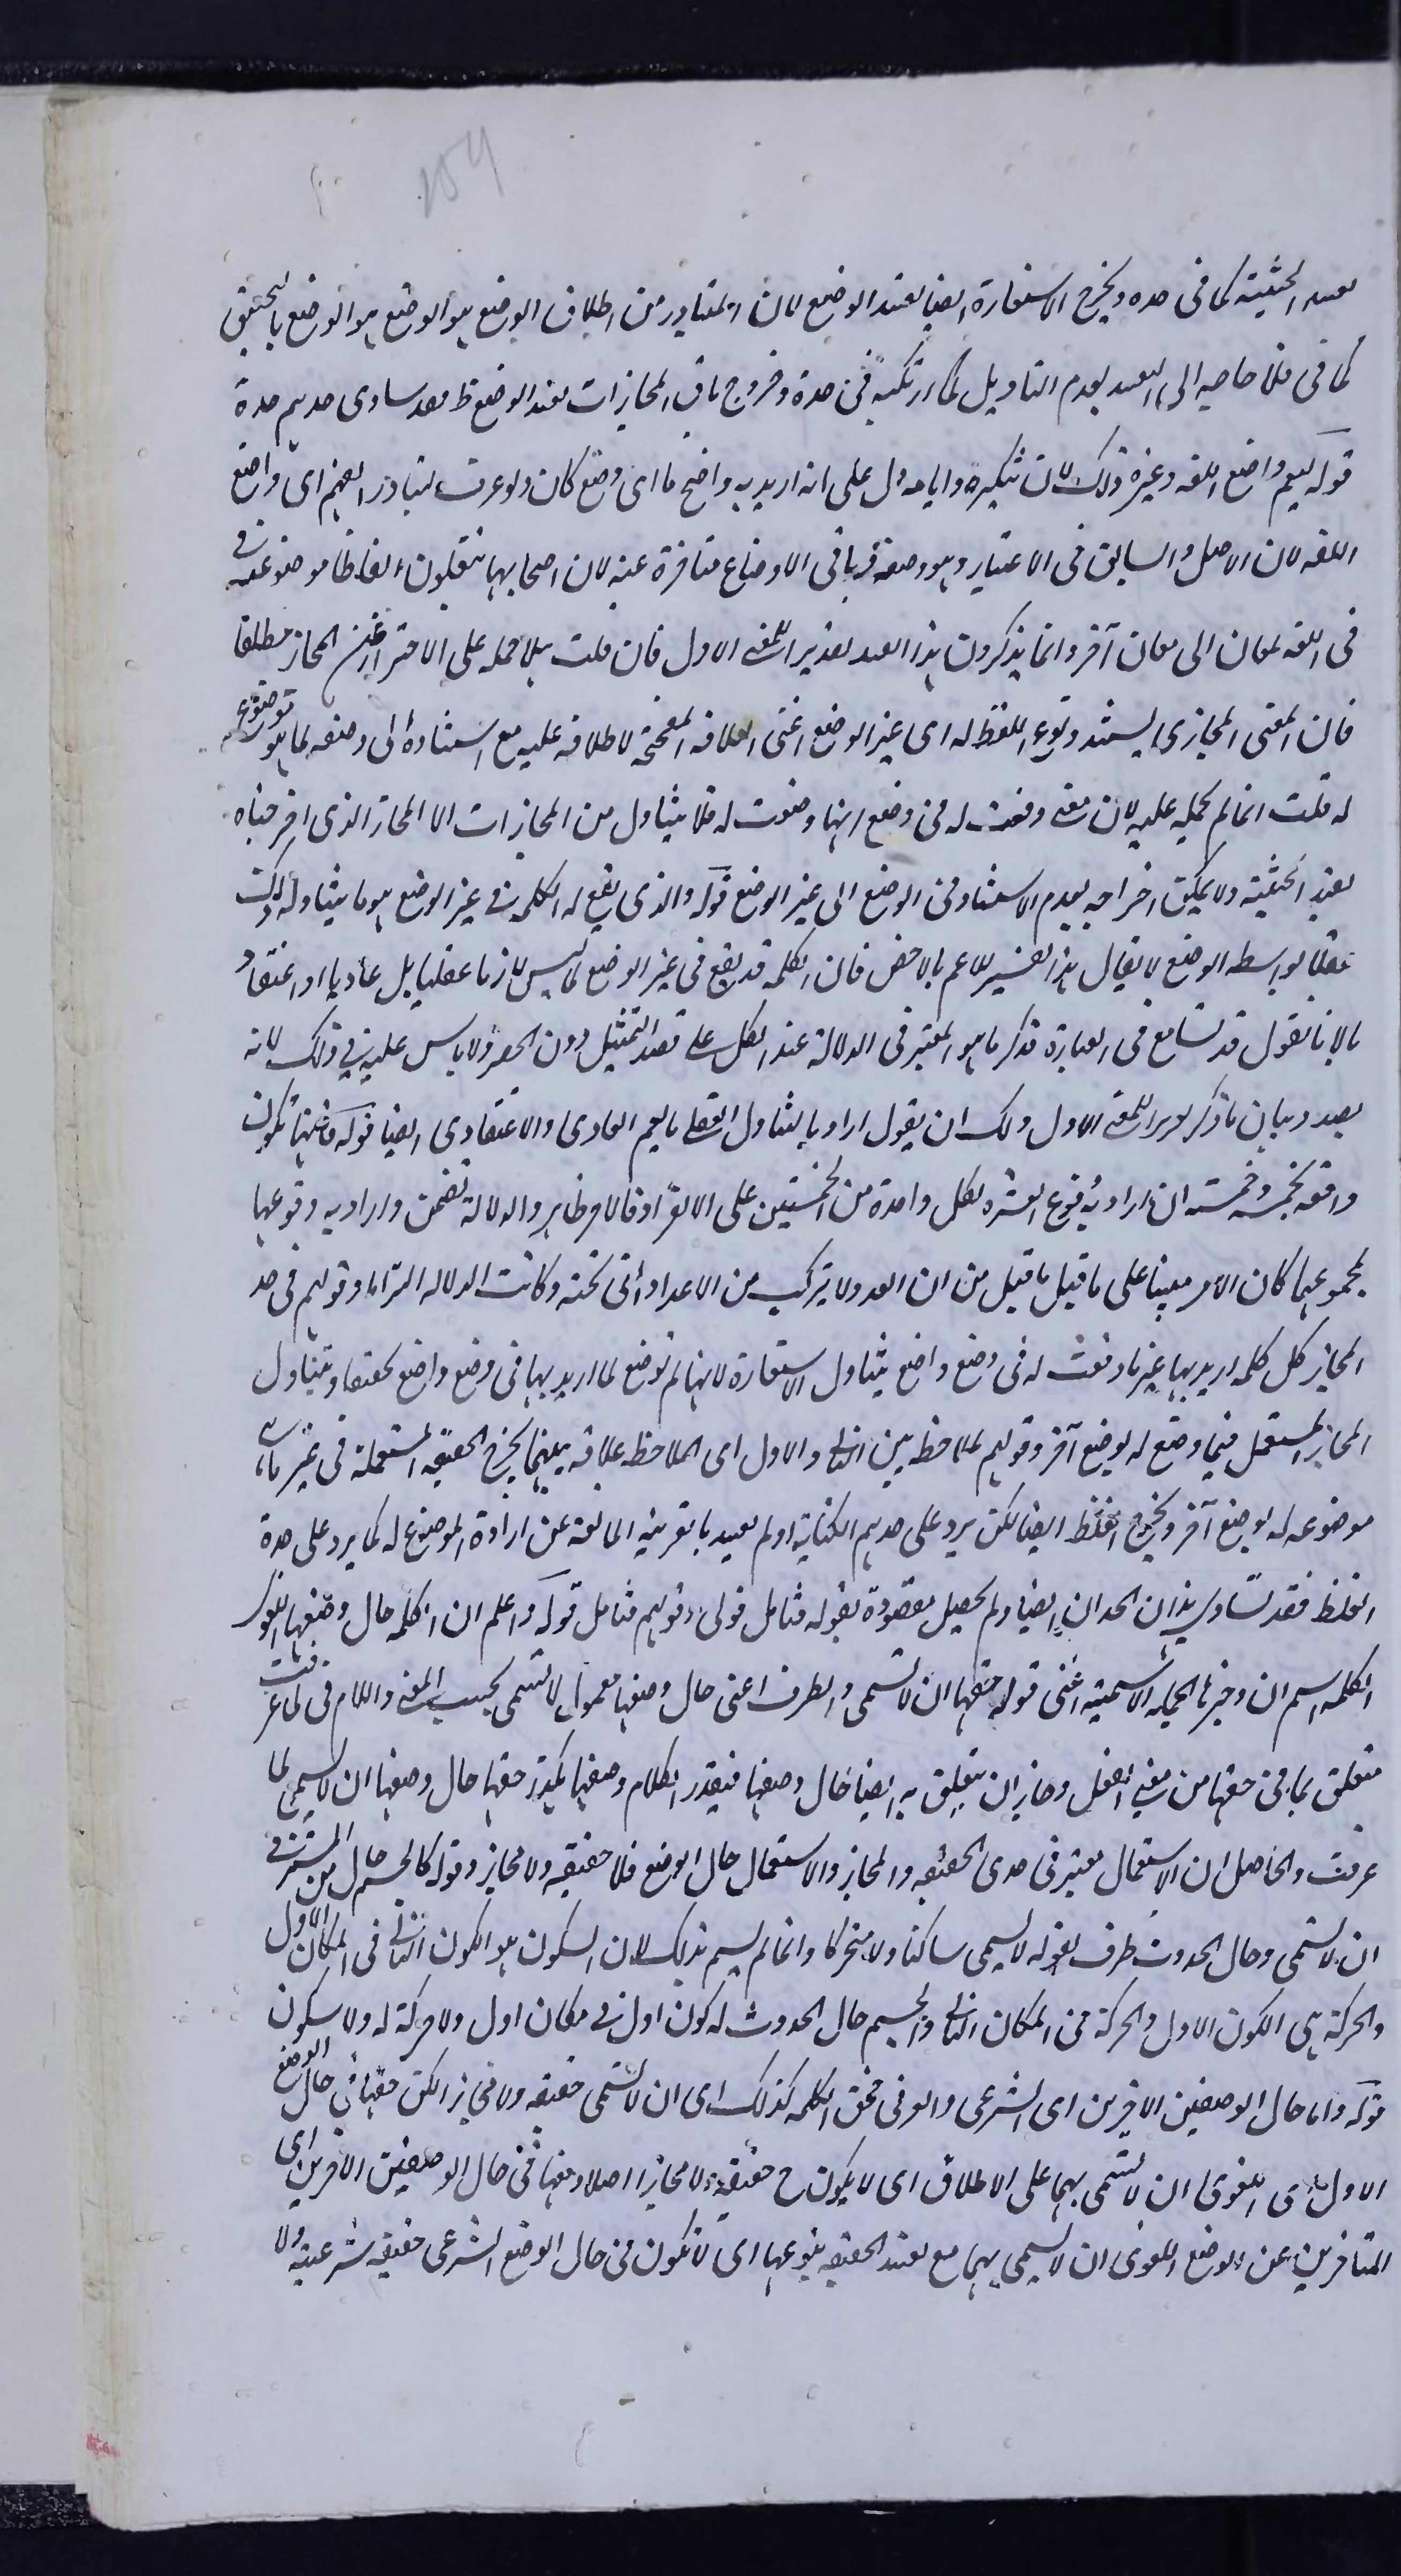 بقيد الحيثية كما فى حده ويخرج الاستعارة ايضا بقيد الوضع لان المتبادر من اطلاق الوضع هو الوضع هو الوضع بالتحقيق
كما فى فلا حاجة الى التقييد بعدم التاويل كما ارتكبه فى حده وخروج باقى المجازات بقيد الوضع ظ فقد ساوى حدهم حده
قوله ليعم واضع اللغه وغيره وذلك لان تنكيره واياه دل على انه اريد به واضح ما اى وضع كان ولو عرف لتبادر الفهم اى واضع
اللغه لان الاصل والسابق فى الاعتبار وهو وضعه فباقى الاوضاع متاخرة عنه لان اصحابها ينقلون الفاظا موضوعه
فى اللغه لمعان الى معان آخر وانما يذكرون هذا القيد الاول فان قلت هلا حمله على الاحتراز عن المجاز مطلقا
فان المعنى المجازى ليستند وقوع اللفظ له اى غير الوضع اعنى العلاقه المصححة لاطلاقه عليه مع استناده الى وضعه لما هو موضوع
له قلت انما لم يحمله عليه لان معنى وقعت له فى وضع انها وضعت له فلا يتناول من المجازات الا المجاز الذى اخرجناه
بقيد الحيثية ولا يمكن اخراجه بعدم الاستناد فى الوضع الى غير الوضع قوله والذى يقع له الكلمه فى غير الوضع هو ما يتناوله ذلك
عقلا بواسطه الوضع لا يقال هذا تفسير للاعم بالاخص فان الكلمه قد يقع فى غير الوضع لما ليس لازما عقليا بل عاديا او اعتقاد
يا لانا نقول قد تسامح فى العبارة فذكر ما هو المعتبر فى الدلالة عند الكل على قصد التمثيل دون الحصر ولا باس عليه فى ذلك لانه
بصدد بيان ما ذكر الاول ولك ان يقول اراد بالتناول العقلى ما يعم العادى والاعتقادى ايضا قوله فانها تكون
واقعه لخمسه وخمسه ان اراد به وقوع العشره لكل واحدة من الخمستين على الانفراد فالامر ظاهر والدلالة تضمن وان اراد به وقوعها
لمجموعهما كان الامر مبينا على ما قيل ما قيل من ان العدد لا يتركب من الاعداد التى تحته وكانت الدلاله التزاما وقولهم فى حد
المجاز كل كلمه اريد بها غير ما وقعت له فى وضع واضع يتناول الاستعارة لانها لم توضع لما اريد بها فى وضع واضع تحقيقا ويتناول
المجاز المستعمل فيما وضع له بوضع آخر وقولهم لملاحظه بين الثانى والاول اى الملاحظه علاقه بينهما يخرج الحقيقه المستعملة فى غير ما هى
موضوعه له بوضع آخر ويخرج الغلظ ايضا لكن يرد على حدهم الكنايه اذ لم يقيد بالقرينه المانعه عن ارادة الموضوع له كما يرد على حده
الغلظ فقد تساوى هذان الحدان ايضا ولم يحصل مقصوده بقوله فتامل قولى وقولهم فتامل قوله واعلم ان الكلمه حال وضعها اللغوى
الكلمه اسم ان وخبرها الجمله الاسميه اعنى قوله حقها ان لا تسمى والظرف اعنى حال وضعها معمول لا تسمى بحسب المعنى واللام فى لما عرفت
متعلق بما فى حقها من معنى الفعل وجاز ان يتعلق به ايضا حال وضعها فيقدر الكلام وضعها هكذا حقها حال وضعها ان لا يسمى لما
عرفت والحاصل ان الاستعمال معتبر فى حدى الحقيقه والمجاز والاستعمال حال الوضع فلا حقيقه ولا مجاز وقوله كالجسم حال من المستتر فى
ان لا تسمى وحال الحدوث ظرف لقوله لا يسمى ساكنا ولا متحركا وانما لم يسم بذلك لان السكون هو الكون الثانى فى المكان الاول
والحركة هى الكون الاول والحركة فى المكان الثانى والجسم حال الحدوث له كون اول فى مكان اول ولا حركة له ولا سكون
قوله واما حال الوضعين الاخيرين اى الشرعى والعرفى فحق الكلمه كذلك اى ان لا تسمى حقيقه ولا مجازا لكن حقها فى حال الوضع
الاول اى اللغوى ان لا تسمى بهما على الاطلاق اى لا يكون ح حقيقة ولا مجازا اصلا وحقها فى حال الوضعين الاخيرين اى
المتاخرين عن الوضع اللغوى ان لا يسمى بهما مع تقييد الحقيقه بنوعها اى لا تكون فى حال الوضع الشرعى حقيقه شرعيه ولا